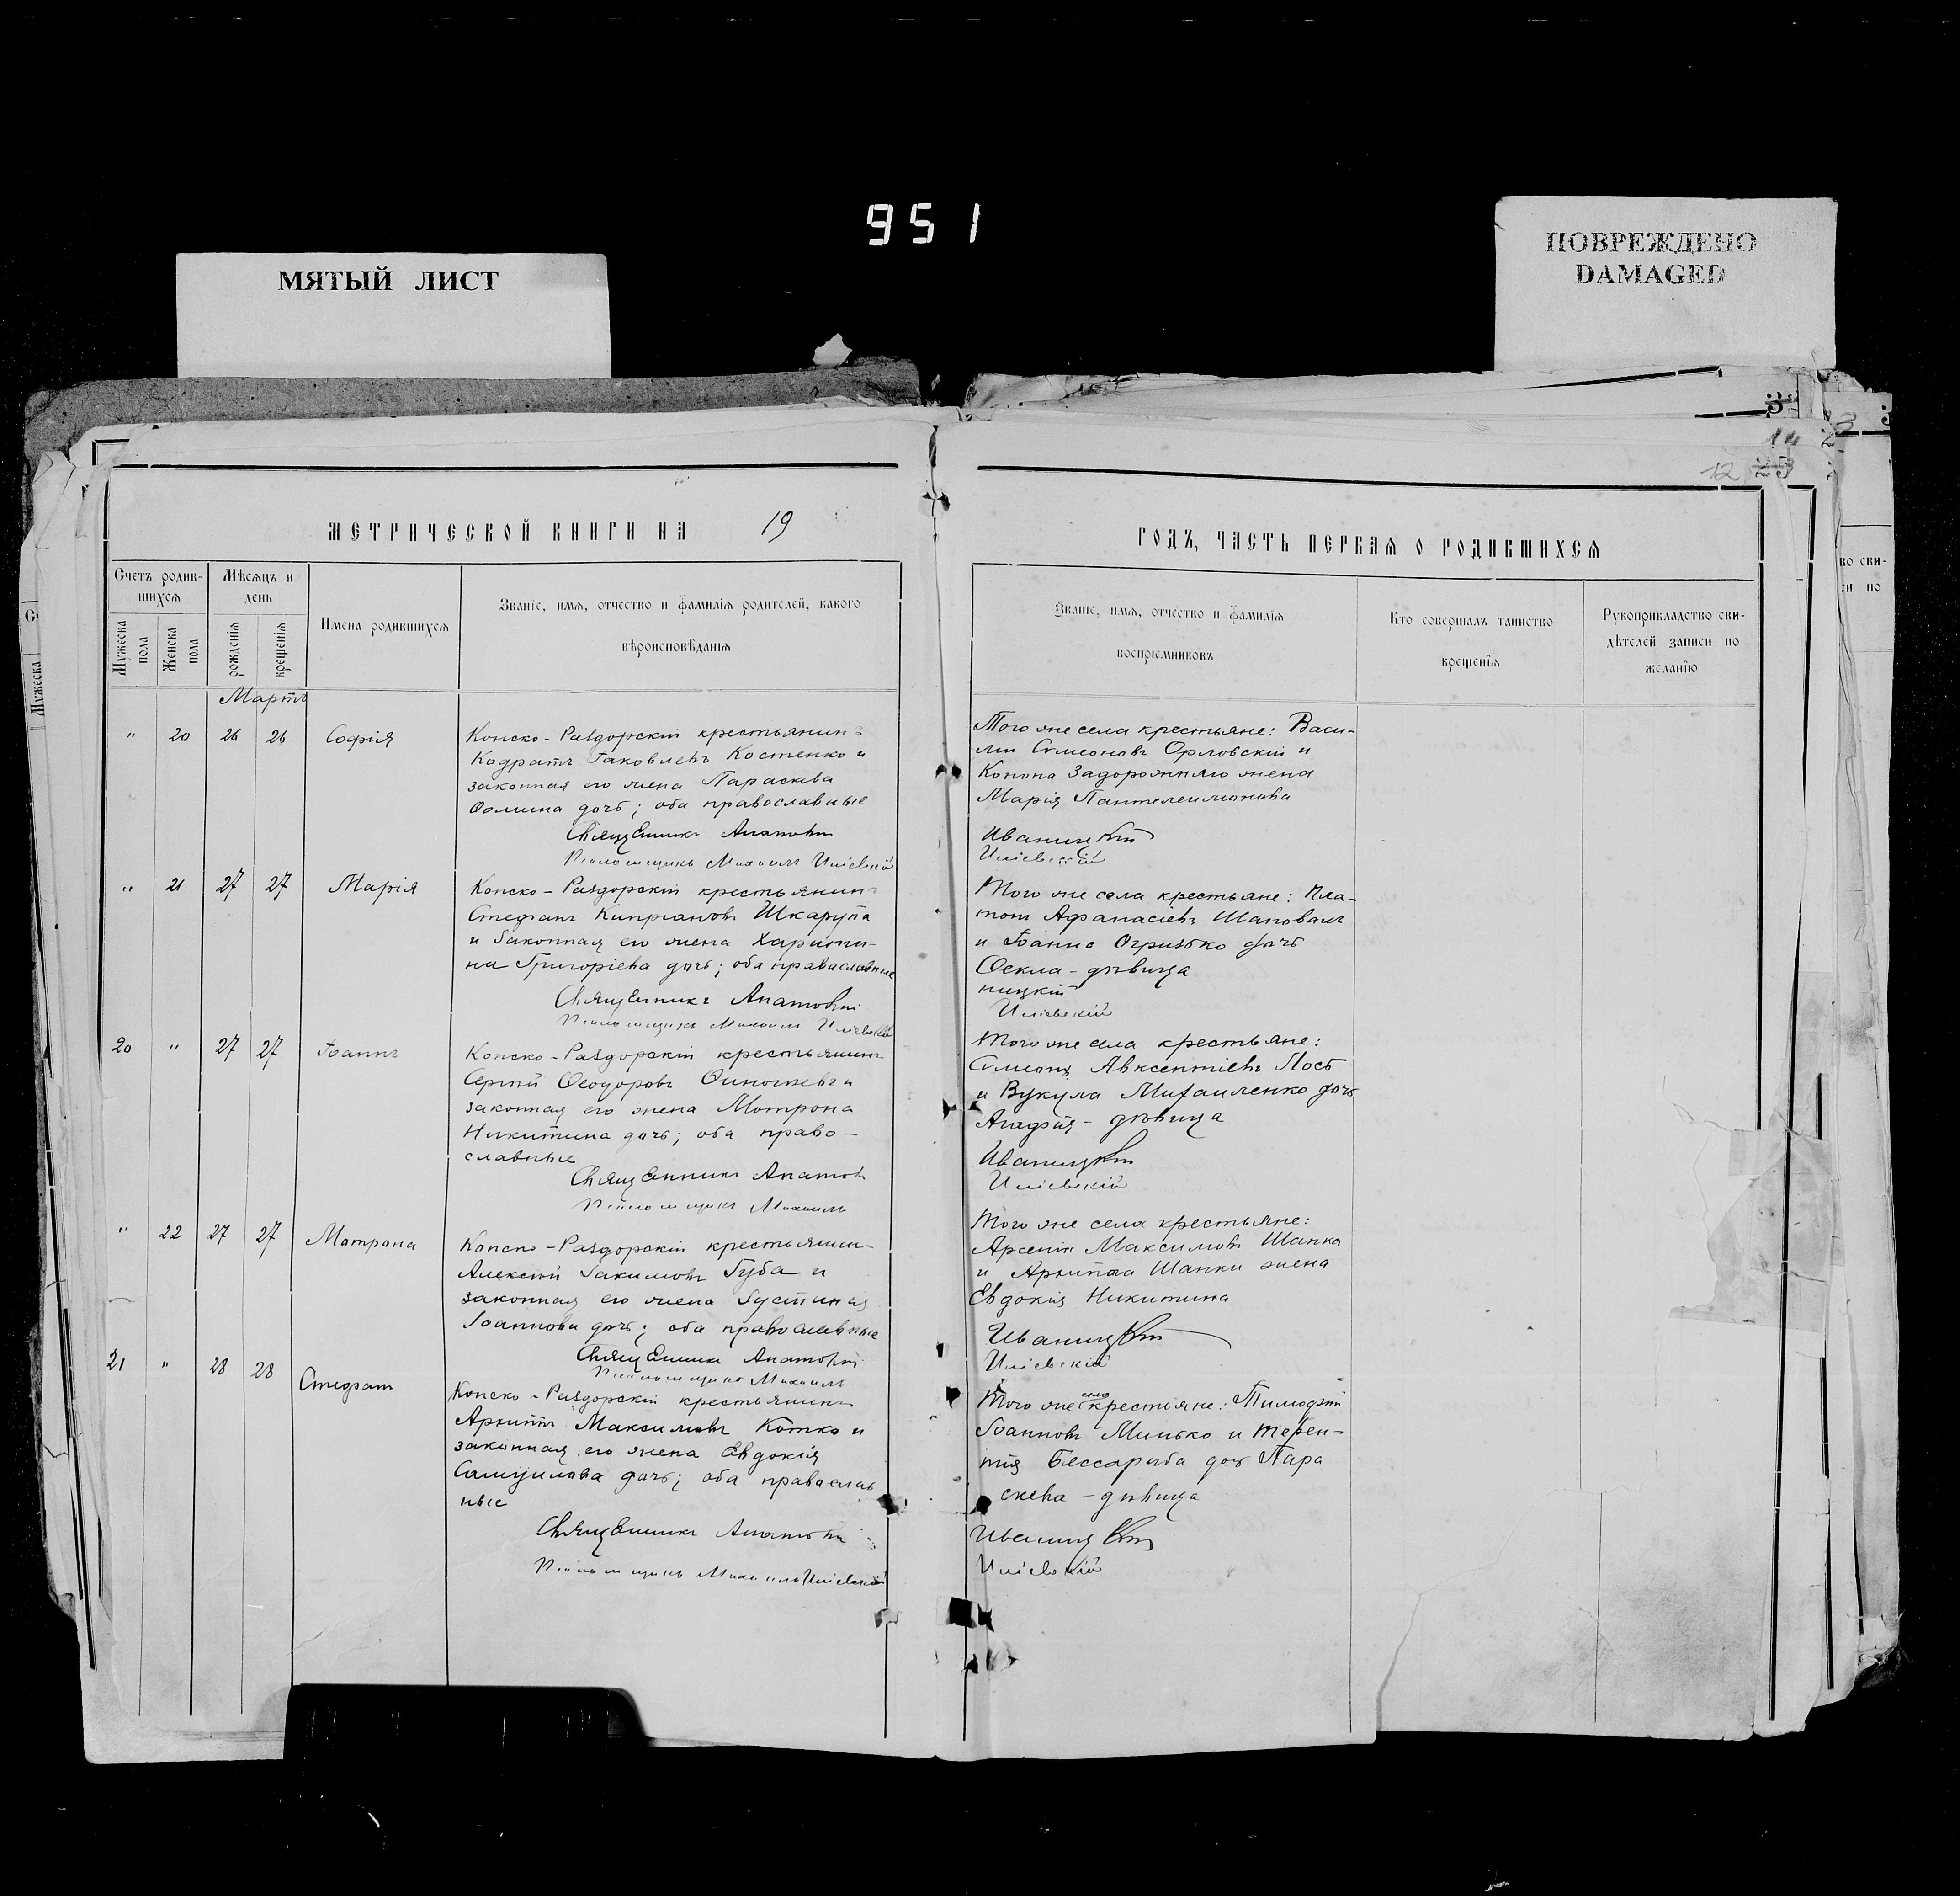 951
МЯТЫЙ ЛИСТ
ПОВРЕЖДЕНО
DAMAGED
12 25
МЕТРИЧЕСКОЙ КНИГИ НА 19
Счетъ родив-
шихся
Мѣсяцъ и
день
Имена родившихся
Званіе, имя, отчество и фамилія родителей, какого
вѣроисповѣданія
Мужеска
пола
Женска
пола
рожденія
крещенія
Мартъ
" 20 26 26 Софія
Конско-Раздорскій крестьянинъ
Кодратъ Іаковлевъ Костенко и
законная его жена Параскева
Ѳомина дочь; оба православные
Священникъ Анатолій
Псаломщикъ Михаилъ Иліевскій
" 21 27 27 Марія
Конско-Раздорскій крестьянинъ
Стефанъ Кипріановъ Шкарупа
и законная его жена Харити-
на Григоріева дочь; оба православные
Священникъ Анатолій
Псаломщикъ Михаилъ Иліевскій
20 " 27 27 Іоаннъ
Конско-Раздорскій крестьянинъ
Сергій Ѳеодоровъ и
законная его жена Мотрона
Никитина дочь; оба право-
славные
Священникъ Анатолій
Псаломщикъ Михаилъ
" 22 27 27 Мотрона
Конско-Раздорскій крестьянин-
Алексій Іакимовъ Губа и
законная его жена Іустинія
Іоаннова дочь; оба православные
Священникъ Анатолій
Псаломщикъ Михаилъ
21 " 28 28 Стефан
Конско-Раздорскій крестьянинъ
Архиппъ Максимовъ Котко и
законная его жена Евдокія
Самуилова дочь; оба православ
ные
Священникъ Анатолій
Псаломщикъ Михаилъ Иліевскій
ГОДЪ, ЧАСТЬ ПЕРВАЯ О РОДИВШИХСЯ
Званіе, имя, отчество и фамилія
воспріемниковъ
Кто совершалъ таинство
крещенія
Рукоприкладство сви-
дѣтелей записи по
желанію
Того же села крестьяне: Васи-
лій Симеоновъ Орловскій и
Конона Задорожняго жена
Марія Пантелеимонова
Иваницкій
Иліевскій
Того же села крестьяне: Пла-
тонъ Афанасіевъ Шаповалъ
и Іоанна Огризько дочь
Ѳекла - дѣвица
ницкій
Иліевскій
Того же села крестьяне:
Симеонъ Авксентіевъ Лось
и Вукула Михайленко дочь
Агафія - дѣвица
Иваницкій
Иліевскій
Того же села крестьяне:
Арсеній Максимовъ Шапка
и Архиппа Шапки жена
Евдокія Никитина
Иваницкій
Иліевскій
Того же села крестьяне: Тимофій
Іоанновъ Минько и Терен-
тія Бессараба дочь Пара
скева - дѣвица
Иваницкій
Иліевскій